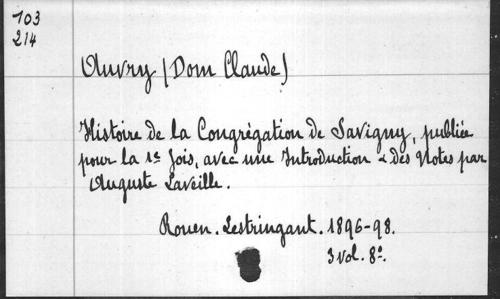 103
214
Auvry (Dom Claude)
Histoire de la Congrégation de Savigny, publiée
pour la 1e fois, avec une Introduction & des Notes par
Auguste Laveille.
Rouen. Lestringant. 1896-98.
3 vol. 8o.